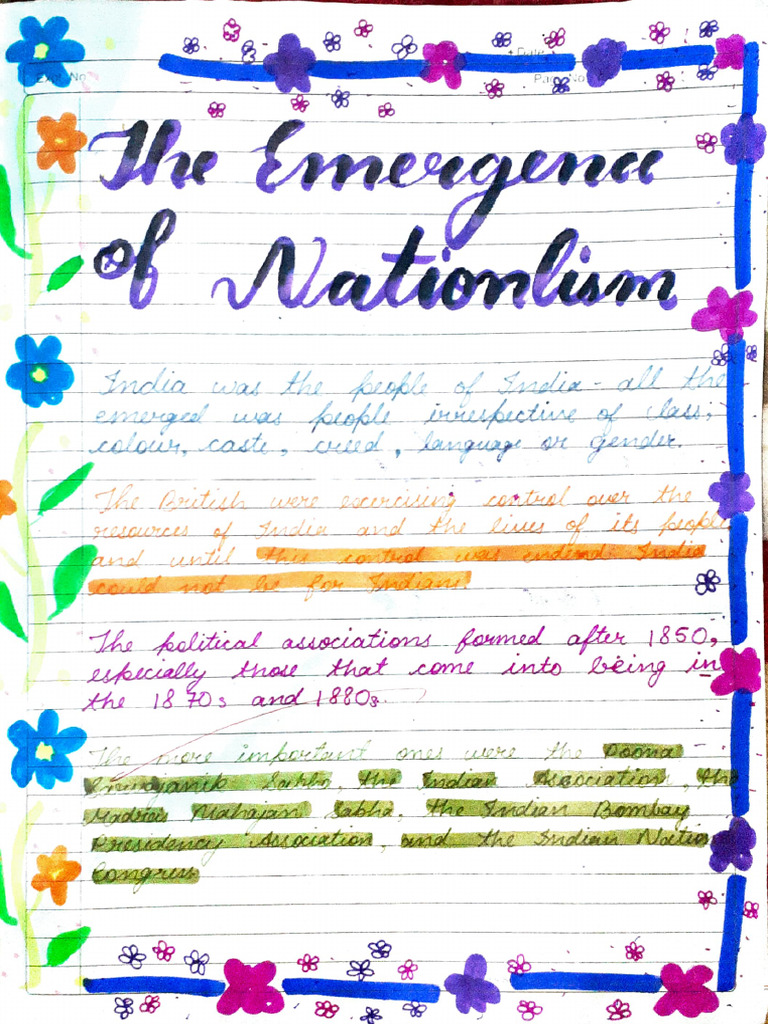 The Emergence
of Nationlism
India was the people of India - all the
emerged was people irrespective of class,
colour, caste, creed, language or gender.
The British were exercising control over the
resources of India and the lives of its people
and until this control was endend India
could not be for Indians.
The political associations formed after 1850,
especially those that come into being in
the 1870s and 1880s.
The more important ones were the Poona
Sabha, the Indian Association, the
Madras Mahajan Sabha, the Indian Bombay
Presidency Association, and the Indian Nation
Congress